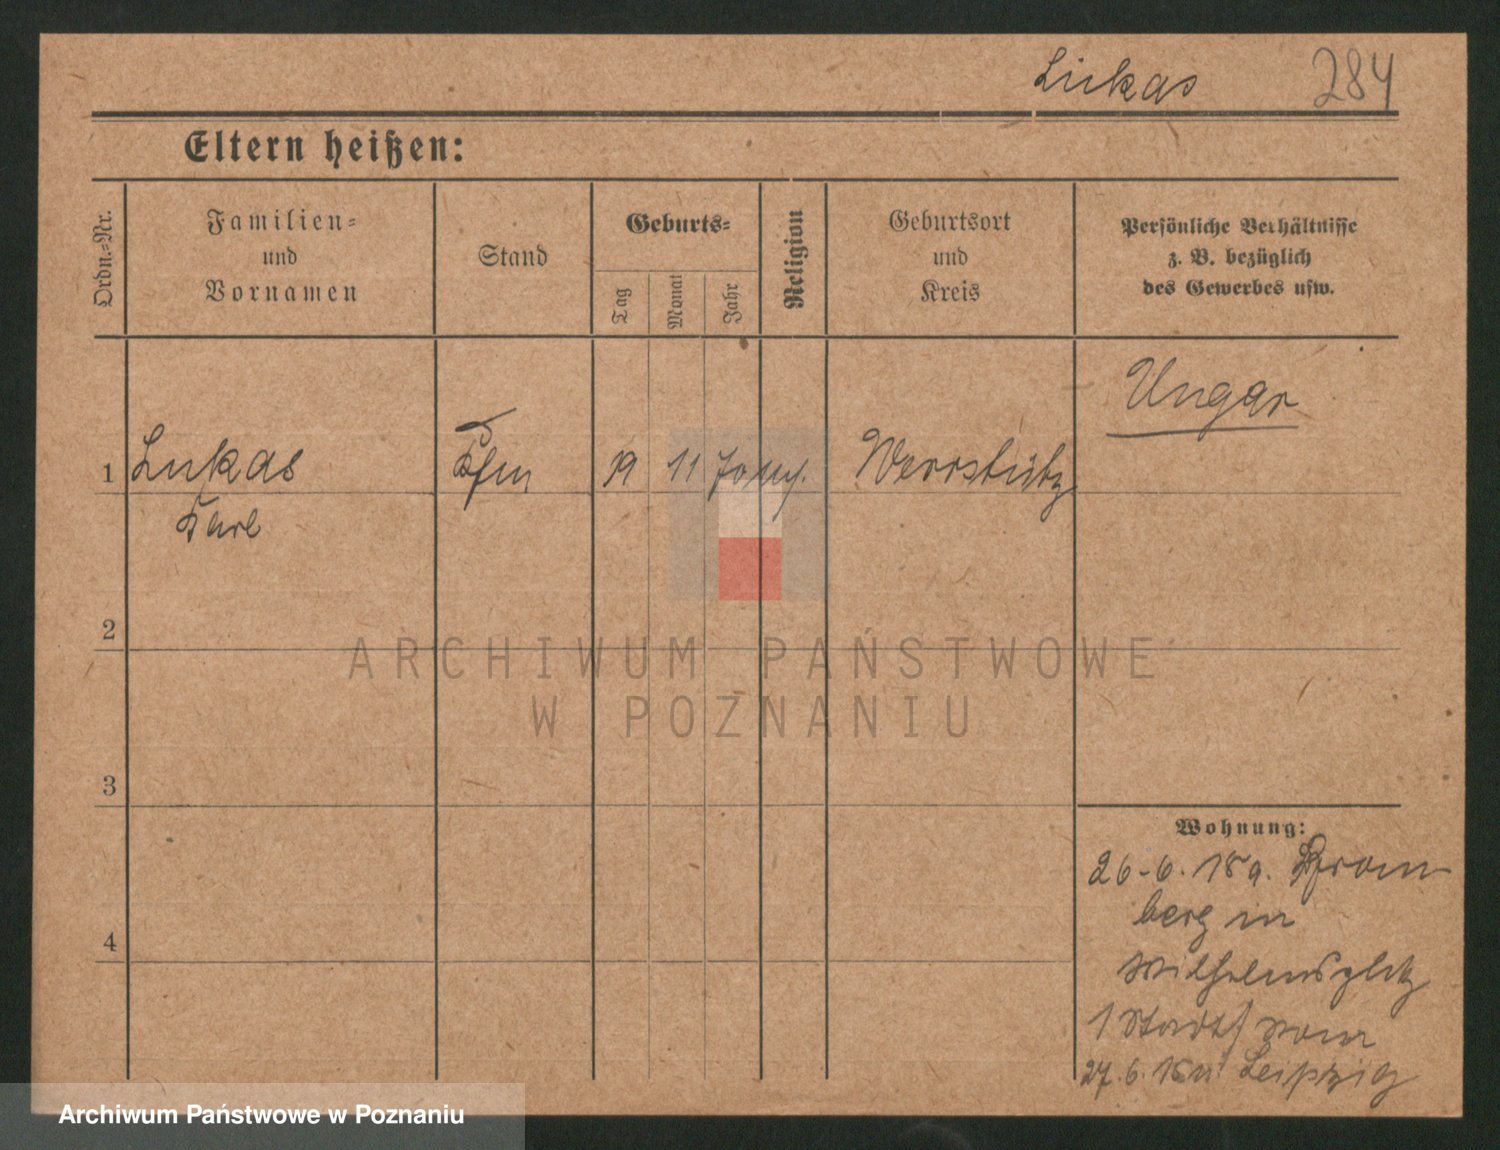 Lukas 284
Eltern heißen:
Ordn.=Nr.
Familien=
und
Vornamen
Stand
Geburts=
Tag
Monat
Jahr
Religion
Geburtsort
und
Kreis
Persönliche Verhältnisse
z. B. bezüglich
des Gewerbes usw.
Ungar
1 Lukas Kfm 19 11 70
Karl
2
3
4
Wohnung:
26.6.18 a. Brom-
berg in
Wilhelmsplatz
1
27.6.18 n. Leipzig
ARCHIWUM PAŃSTWOWE
W POZNANIU
Archiwum Państwowe w Poznaniu